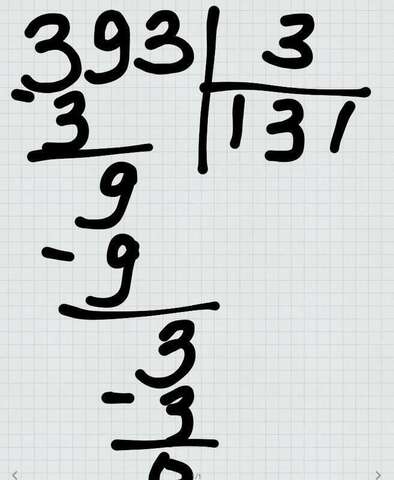 393 | 3
- 3 | 131
9
- 9
3
- 3
0